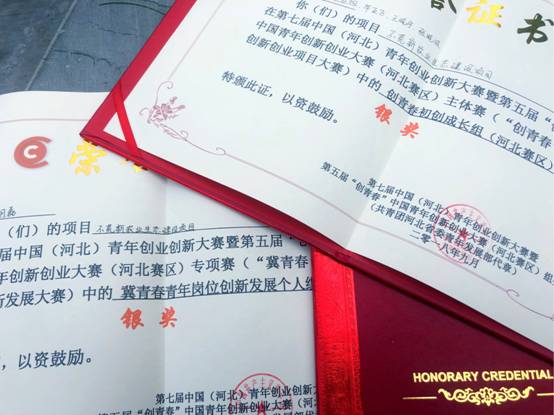 证书
你（们）的项目
在第七届中国（河北）青年创业创新大赛暨第五届“
中国青年创新创业大赛（河北赛区）主体赛（“创青春
创新创业项目大赛）中的 创青春初创成长组（河北赛区）
银奖
特颁此证，以资鼓励。
第七届中国（河北）青年创业创新大赛暨
第五届“创青春”中国青年创新创业大赛（河北赛区）组
（共青团河北省委青年发展部代章）
二〇一八年九月
荣
（们）的项目
届中国（河北）青年创业创新大赛暨第五届“
年创新创业大赛（河北赛区）专项赛（“冀青春
新发展大赛）中的 冀青春青年岗位创新发展个人组
银奖
，以资鼓励。
第七届中国（河北）青年创业创
HONORARY CREDENTIAL